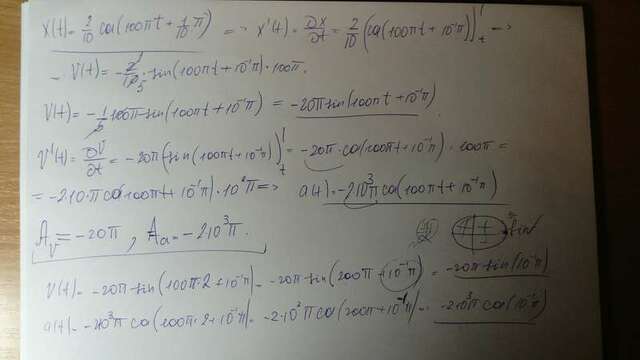 x(t) = 2/10 cos(100πt + 1/10 π) => x'(t) = ∂x/∂t = 2/10 (cos(100πt + 10⁻¹π))'ₜ =>
V(t) = - 2/10 · sin(100πt + 10⁻¹π) · 100π.
V(t) = - 1/5 100π sin(100πt + 10⁻¹π) = -20π sin(100πt + 10⁻¹π)
V'(t) = ∂V/∂t = -20π (sin(100πt + 10⁻¹π))'ₜ = -20π · cos(100πt + 10⁻¹π) · 100π =
= -2·10·π cos(100πt + 10⁻¹π) · 10²π => a(t) = -2·10³π cos(100πt + 10⁻¹π)
Aᵥ = -20π, Aₐ = -2·10³π.
V(t) = -20π sin(100π·2 + 10⁻¹π) = -20π sin(200π + 10⁻¹π) = -20π sin(10⁻¹π)
a(t) = -2·10³π cos(100π·2 + 10⁻¹π) = -2·10²π cos(200π + 10⁻¹π) = -2·10³π cos(10⁻¹π)